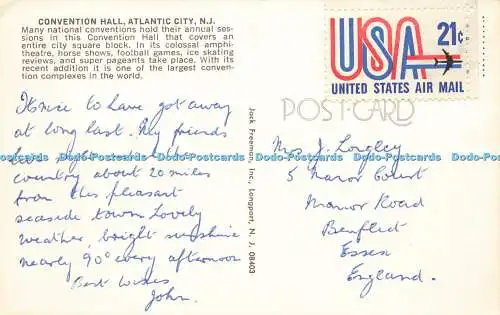 CONVENTION HALL, ATLANTIC CITY, N.J.
Many national conventions hold their annual ses-
sions in this Convention Hall that covers an
entire city square block. In its colossal amphi-
theatre, horse shows, football games, ice skating
reviews, and super pageants take place. With its
recent addition it is one of the largest conven-
tion complexes in the world.
It's nice to have got away
at long last. My friends
live right out in the
country about 20 miles
from this pleasant
seaside town. Lovely
weather, bright sunshine
nearly 90° every afternoon
Best wishes
John.
Jack Freeman, Inc., Longport, N. J. 08403
USA 21¢
UNITED STATES AIR MAIL
POST CARD
Mrs J. Longley
5 Manor Court
Manor Road
Benflict
Essex
England.
Dodo-Postcards Dodo-Postcards Dodo-Postcards Dodo-Postcards Dodo-Postcards